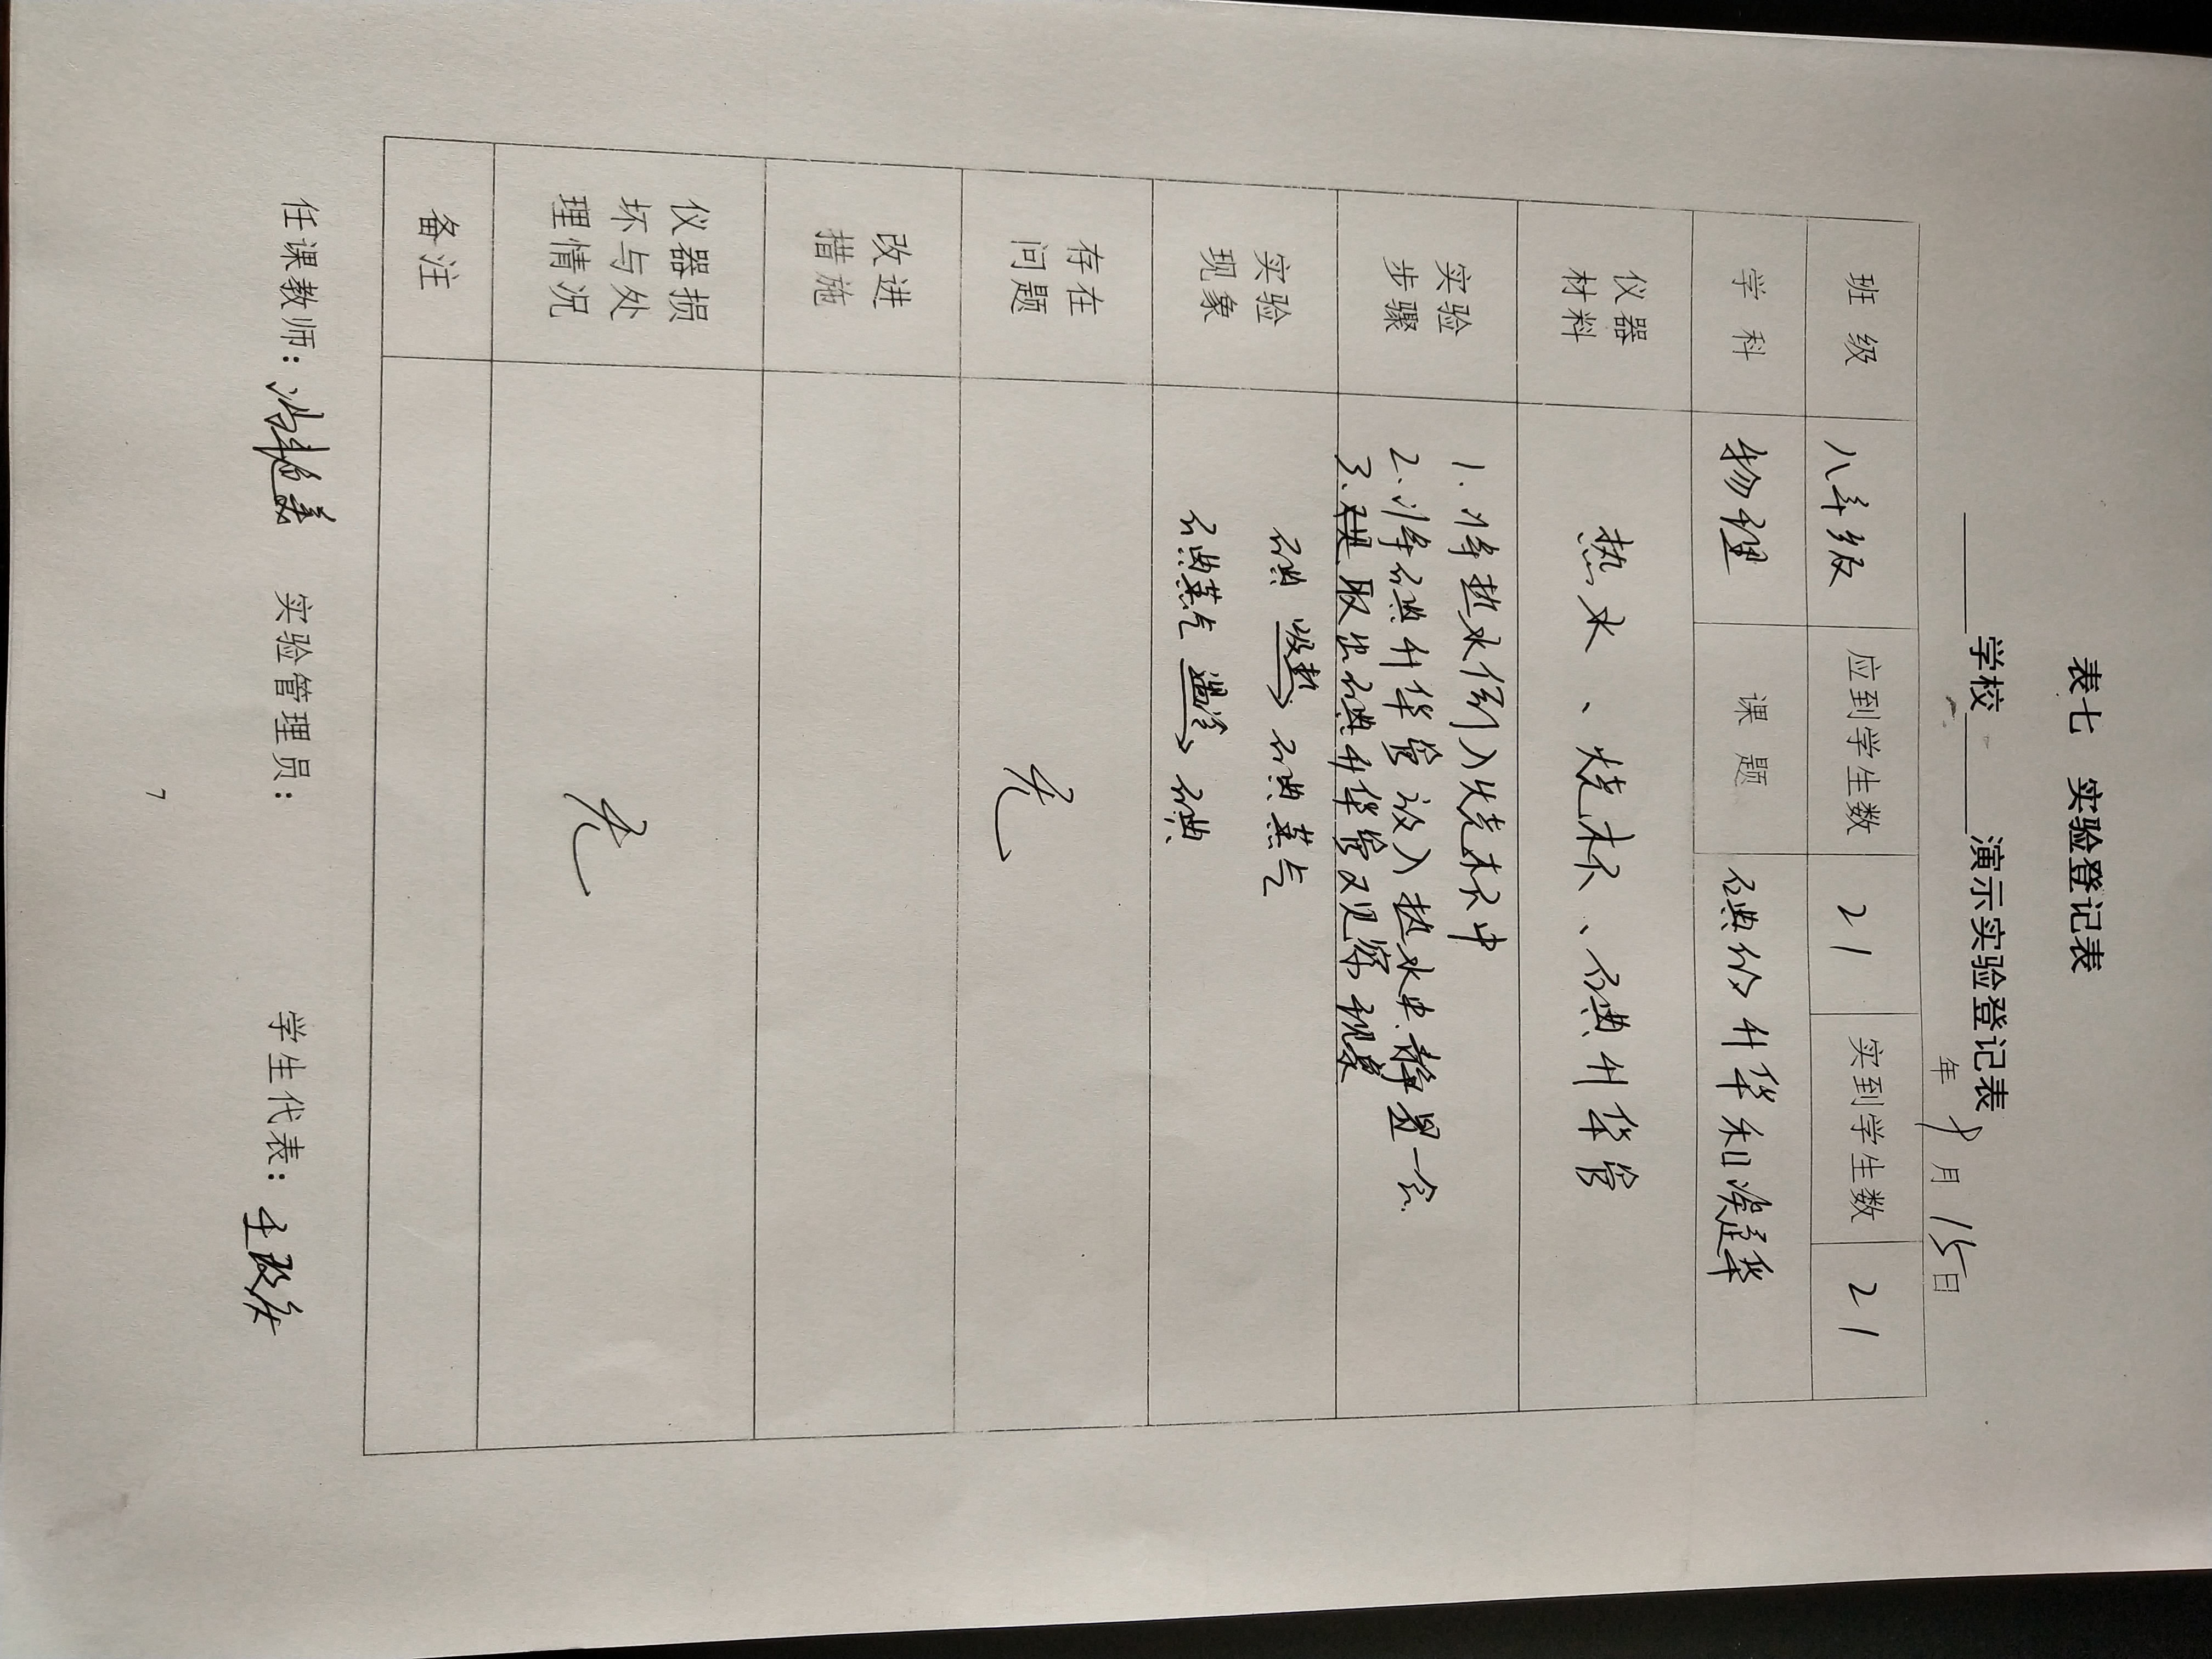 表七 实验登记表
学校 演示实验登记表
年 9 月 15 日
班 级 八年级 应到学生数 21 实到学生数 21
学 科 物理 课 题 碘的升华和凝华
仪器
材料
热水、烧杯、碘升华管
实验
步骤
1. 将热水倒入烧杯中
2. 将碘升华管放入热水中静置一会
3. 取出碘升华管又见察现象
实验
现象
碘 吸热→ 碘蒸气
碘蒸气 遇冷→ 碘
存在
问题
无
改进
措施
仪器损
坏与处
理情况
无
备注
任课教师： 实验管理员： 学生代表：
7